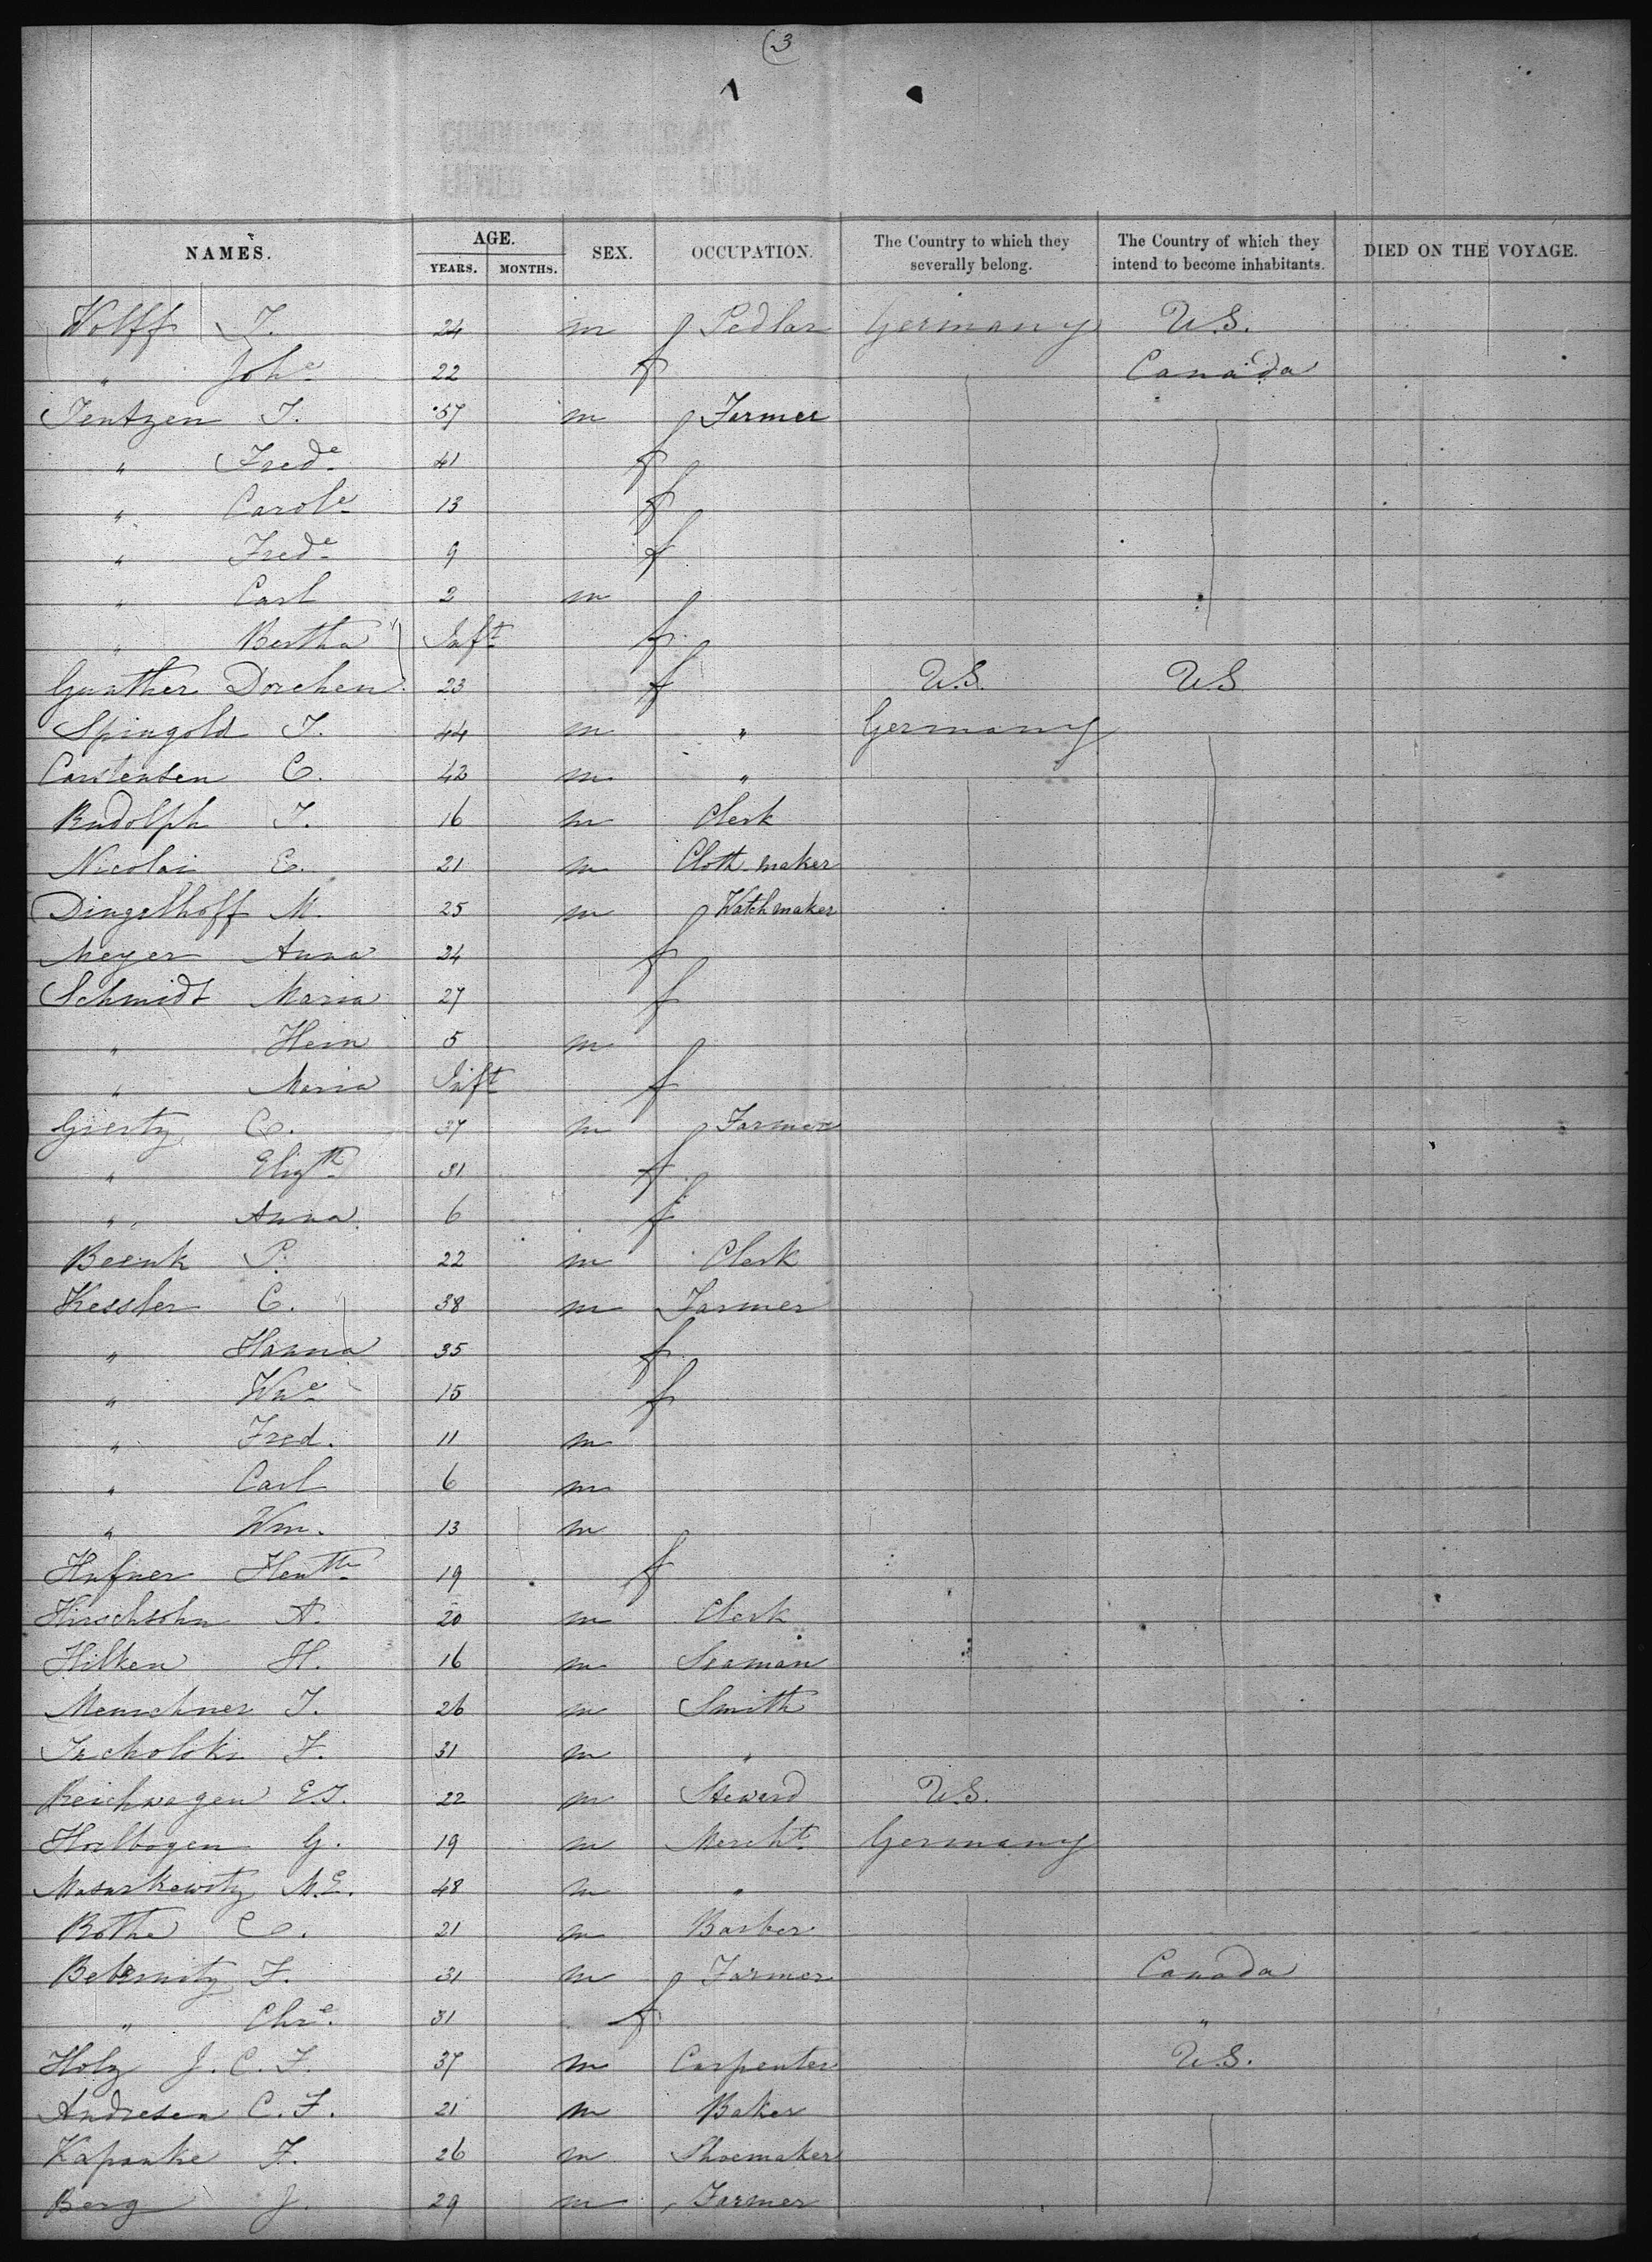 (3
NAMES. AGE. SEX. OCCUPATION. The Country to which they severally belong. The Country of which they intend to become inhabitants. DIED ON THE VOYAGE.
YEARS. MONTHS.
Wolff J. 24 m Pedlar Germany U.S.
" Johe 22 f Canada
Jentzen J. 57 m Farmer
" Frede 41 f
" Carole 13 f
" Frede 9 f
" Carl 2 m
" Bertha Inft f
Gunther Dorchen 23 f U.S. U.S.
Spingold J. 44 m " Germany
Carstensen C. 42 m "
Rudolph J. 16 m Clerk
Nicolai E. 21 m Cloth maker
Dingelhoff M. 25 m Watchmaker
Meyer Anna 24 f
Schmidt Maria 27 f
" Hein 5 m
" Maria Inft f
Giertz C. 37 m Farmer
" Elizth 31 f
" Anna 6 f
Beenk P. 22 m Clerk
Kessler C. 38 m Farmer
" Hanna 35 f
" Wne 15 f
" Fred. 11 m
" Carl 6 m
" Wm. 13 m
Hufner Hentte 19 f
Hirschsohn A. 20 m Clerk
Hilken H. 16 m Seaman
Menschner J. 26 m Smith
Jacholski F. 31 m "
Reichwagen E.J. 22 m Steward U.S.
Horlbogen G. 19 m Mercht Germany
Masurkewitz M.E. 48 m "
Rothe C. 21 m Barber
Bebernitz F. 31 m Farmer Canada
" Chre. 31 f "
Holz J. C. F. 37 m Carpenter U.S.
Andresen C. F. 21 m Baker
Kapanke F. 26 m Shoemaker
Berg J. 29 m Farmer